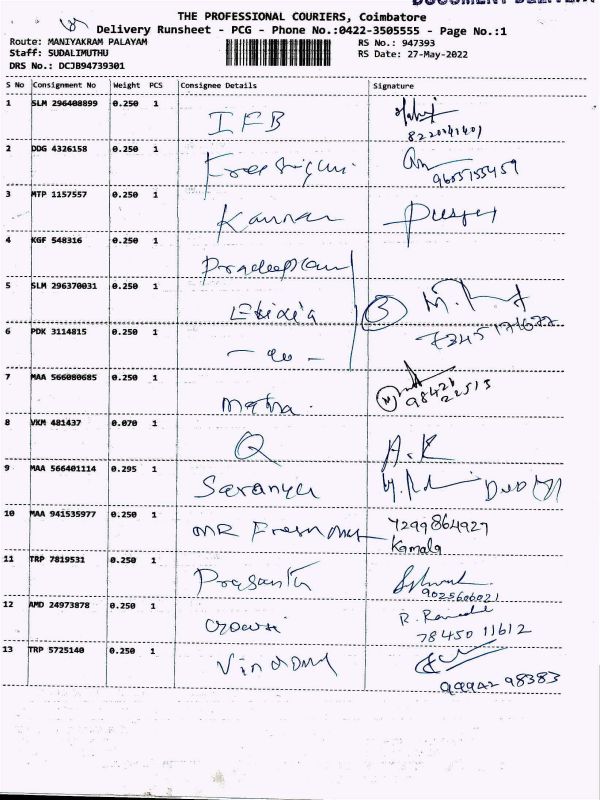 DOCUMENT DELIVERY
THE PROFESSIONAL COURIERS, Coimbatore
Delivery Runsheet - PCG - Phone No.:0422-3505555 - Page No.:1
Route: MANIYAKRAM PALAYAM RS No.: 947393
Staff: SUDALIMUTHU RS Date: 27-May-2022
DRS No.: DCJB94739301
S No Consignment No Weight PCS Consignee Details Signature
1 SLM 296408899 0.250 1 IFB
8220141401
2 DDG 4326158 0.250 1
9655155459
3 MTP 1157557 0.250 1 Kannan
4 KGF 548316 0.250 1
5 SLM 296370031 0.250 1 3
6 PDK 3114815 0.250 1
7 MAA 566080685 0.250 1
98421
22513
8 VKM 481437 0.070 1 Q A.K
9 MAA 566401114 0.295 1 Saranya
10 MAA 941535977 0.250 1 MR 7299864927
Kamala
11 TRP 7819531 0.250 1 Prasanth
9025606021
12 AMD 24973878 0.250 1
78450 11612
13 TRP 5725140 0.250 1
99942 98383